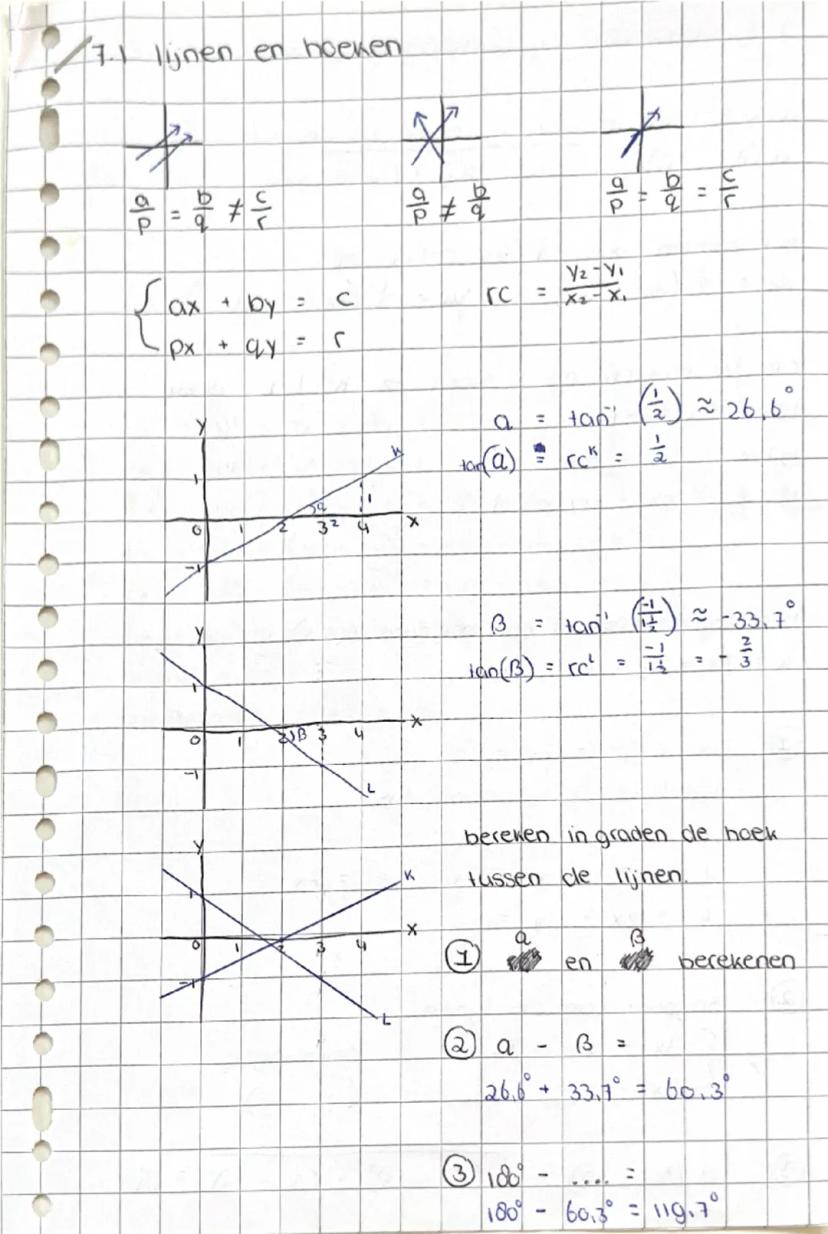 7.1 lijnen en hoeken
a/p = b/q ≠ c/r
a/p ≠ b/q
a/p = b/q = c/r
{ ax + by = c
px + qy = r
rc = y₂-y₁ / x₂-x₁
a = tan⁻¹ (1/2) ≈ 26,6°
tan(a) = rcᴷ = 1/2
Y
K
1
a 1
0 1 2 3 2 4 X
-1
B = tan⁻¹ (-1/1½) ≈ -33,7°
tan(B) = rcᴸ = -1/1½ = - 2/3
Y
1
0 1 2 B 3 4 X
-1
L
bereken in graden de hoek
tussen de lijnen.
Y
K
1
0 1 2 3 4 X
-1
L
a B
① en berekenen
② a - B =
26,6° + 33,7° = 60,3°
③ 180° - .... =
180° - 60,3° = 119,7°